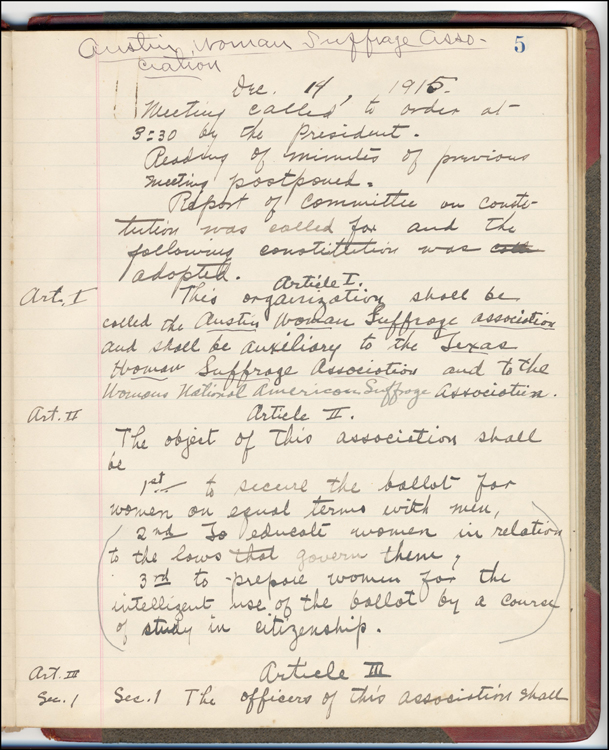 Austin Woman Suffrage Asso-
ciation
5
Dec. 14, 1915.
Meeting called to order at
3:30 by the President.
Reading of minutes of previous
meeting postponed.
Report of Committee on consti-
tution was called for and the
following constitution was
adopted. Article I.
Art. I This organization shall be
called the Austin Woman Suffrage association
and shall be auxiliary to the Texas
Woman Suffrage Association and to the
Womans National American Suffrage Association.
Art. II Article II.
The object of this association shall
be
1st to secure the ballot for
women on equal terms with men,
2nd To educate women in relation
to the laws that govern them,
3rd to prepare women for the
intelligent use of the ballot by a course
of study in citizenship.
Art. III Article III
Sec. 1 Sec. 1 The officers of this association shall